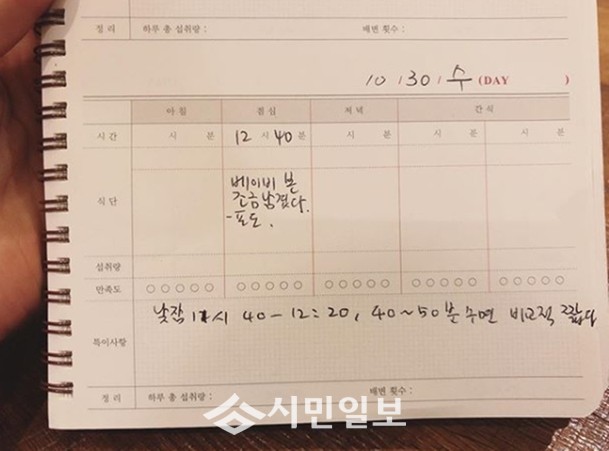 정 리 하루 총 섭취량 : 배변 횟수 :
10 / 30 / 수 (DAY )
아 침 점 심 저 녁 간 식
시 간 시 분 12 시 40 분 시 분 시 분 시 분
식 단 베이비 본
조금 남겼다.
- 포도.
섭취량
만족도 ○○○○○ ○○○○○ ○○○○○ ○○○○○ ○○○○○
낮잠 11시 40 - 12:20, 40~50분 수면 비교적 짧다
특이사항
정 리 하루 총 섭취량 : 배변 횟수 :
시민일보